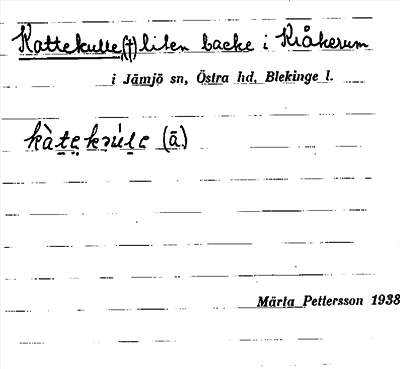 Kattekulle, (f) liten backe i Kråkerum
i Jämjö sn, Östra hd, Blekinge l.
(ā)
Märta Pettersson 1938